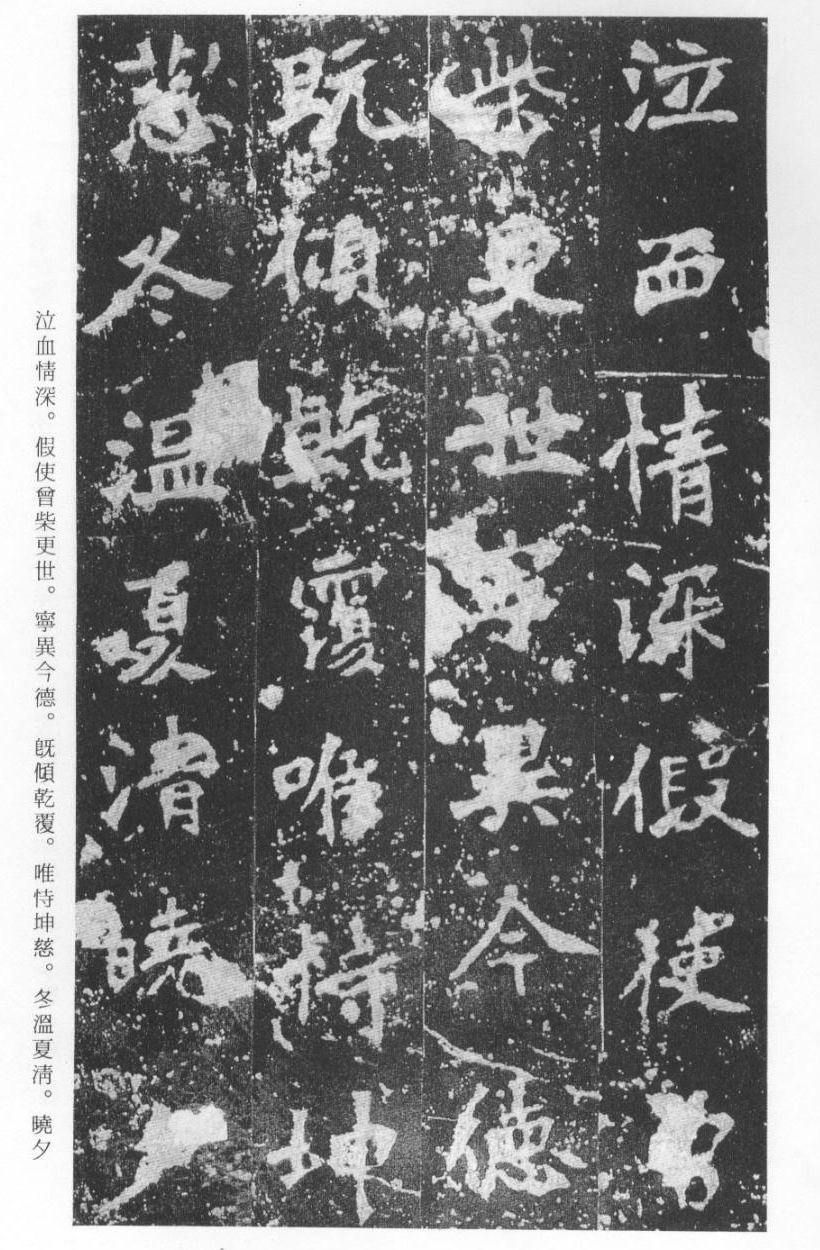 泣血情深假使曾
柴更世寧異今德
既傾乾覆唯恃坤
慈冬溫夏清曉夕
泣血情深。假使曾柴更世。寧異今德。旣傾乾覆。唯恃坤慈。冬溫夏淸。曉夕